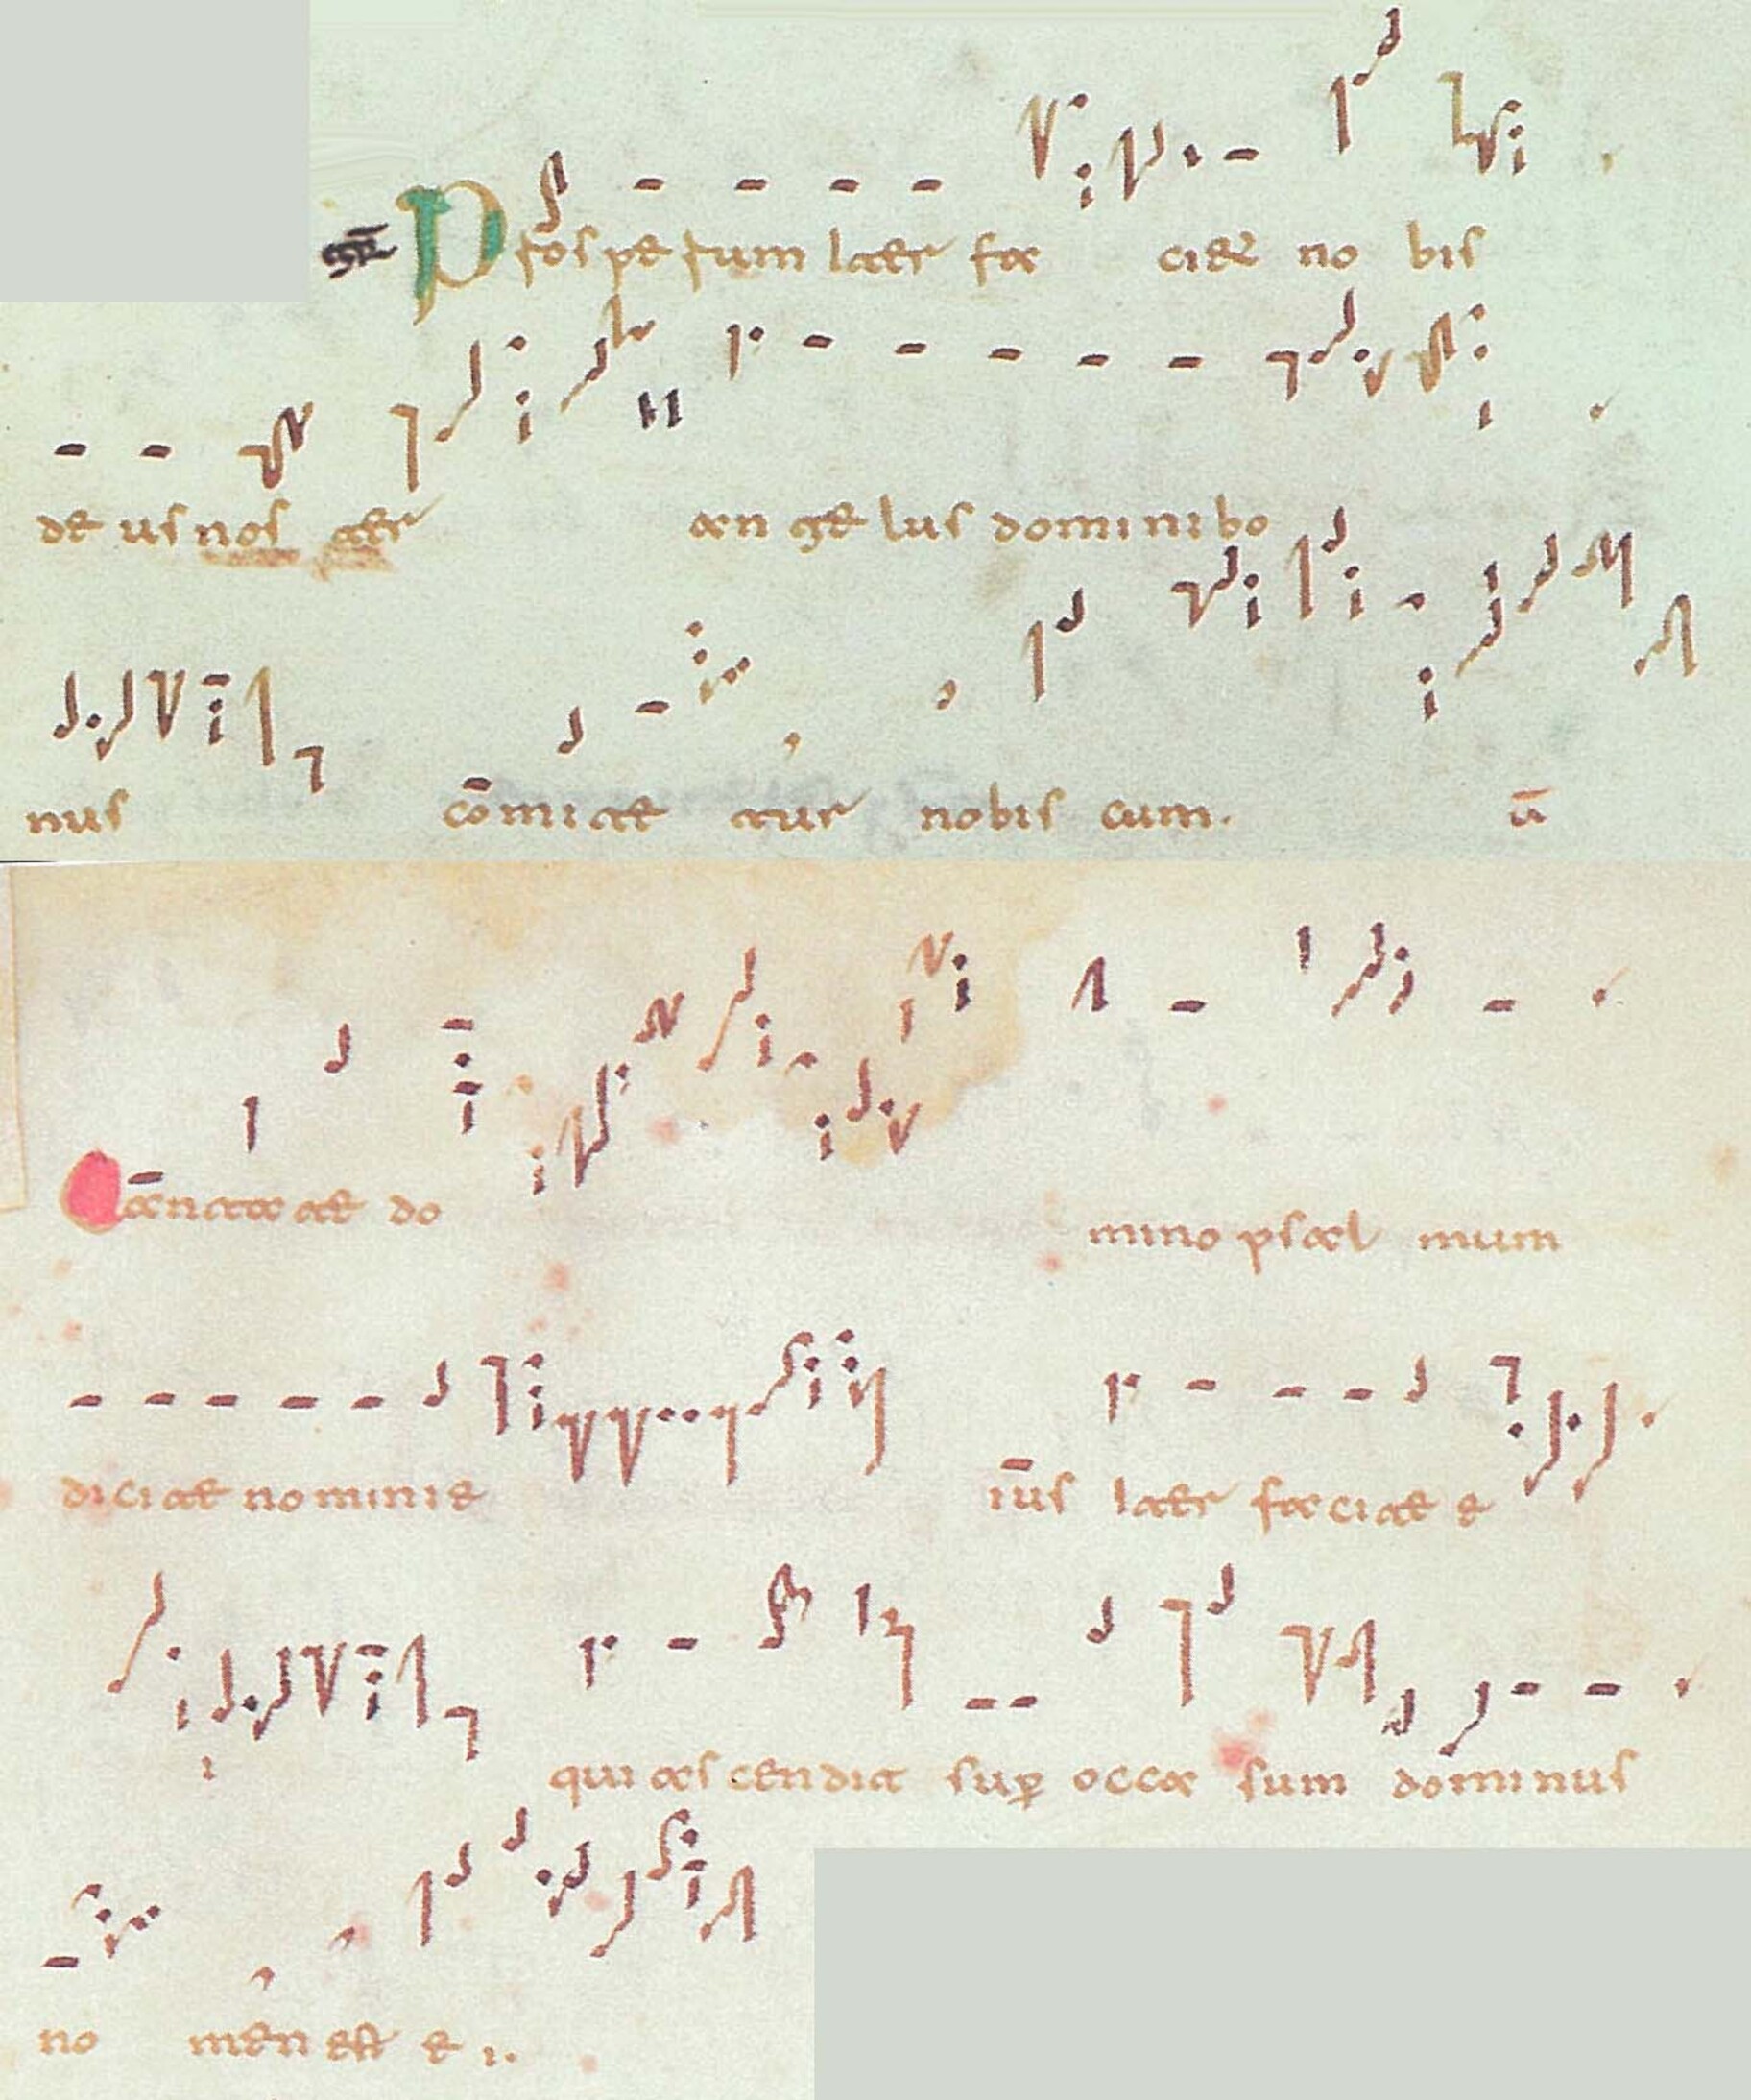 GR Prosperum iter faciet nobis
deus noster angelus domini bo
nus comitetur nobiscum. v̄
Cantate domino psalmum
dicite nomini eius iter facite e
i qui ascendit suꝑ occasum dominus
nomen est ei.